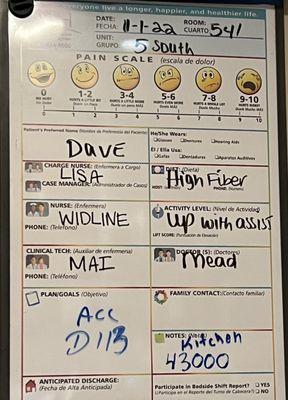 everyone live a longer, happier, and healthier life.
DATE:
FECHA: 11-1-22
ROOM:
CUARTO: 541
UNIT:
GRUPO: 5 South
PAIN SCALE (escala de dolor)
0 1-2 3-4 5-6 7-8 9-10
NO HURT HURTS A LITTLE BIT HURTS A LITTLE MORE HURTS EVEN MORE HURTS A WHOLE LOT HURTS WORST
0 1 2 3 4 5 6 7 8 9 10
Patient's Preferred Name (Nombre de Preferencia del Paciente)
Dave
He/She Wears:
Glasses Dentures Hearing Aids
El / Ella Usa:
Gafas Dentaduras Aparatos Auditivos
CHARGE NURSE: (Enfermera a Cargo)
LISA
CASE MANAGER: (Administrador de Casos)
DIET: (Dieta)
High Fiber
PHONE: (Número)
NURSE: (Enfermera)
WIDLINE
PHONE: (Telefono)
ACTIVITY LEVEL: (Nivel de Actividad)
Up with assist
LIFT SCORE:
CLINICAL TECH: (Auxiliar de enfermeria)
MAI
PHONE: (Teléfono)
DOCTOR(S): (Doctores)
Mead
PLAN/GOALS (Objetivo)
Acc
D113
FAMILY CONTACT: (Contacto familiar)
NOTES: (Notas)
Kitchen
43000
ANTICIPATED DISCHARGE:
(Fecha de Alta Anticipada)
Participate in Bedside Shift Report? YES
(Participa en el Reporte del Turno de Cabecera?) NO